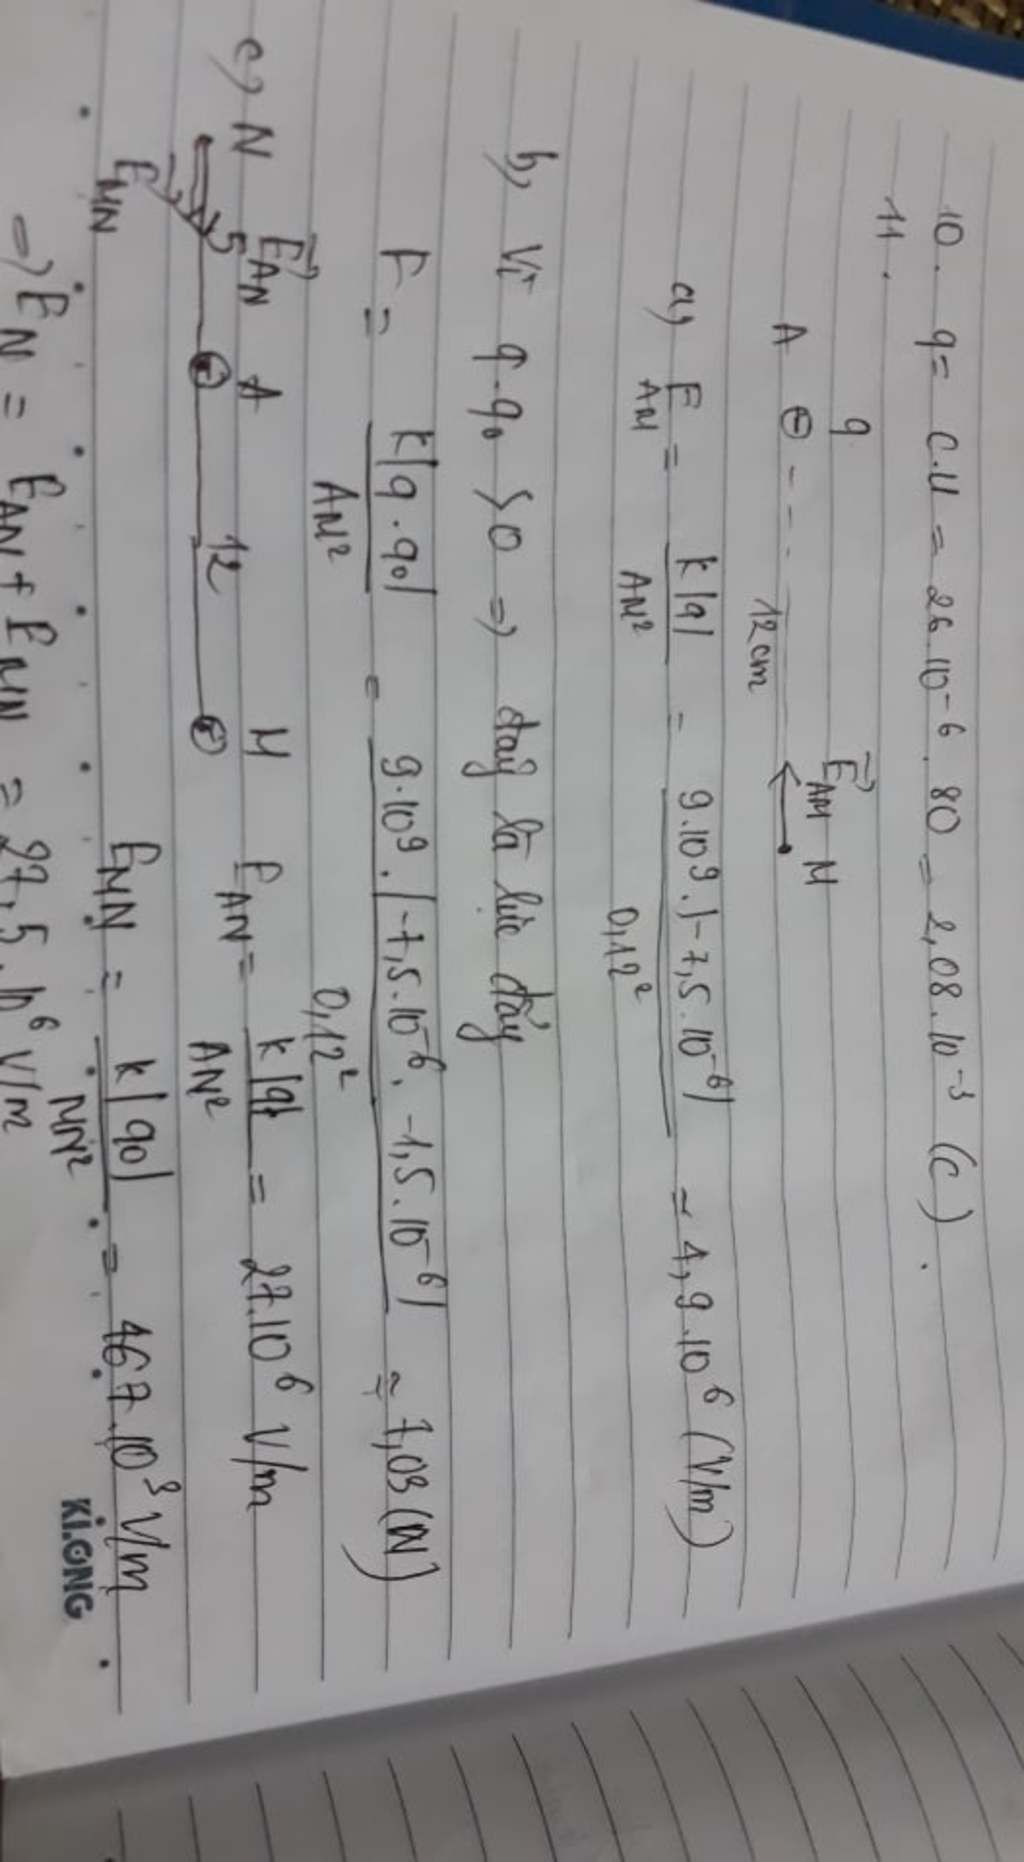 10. q = C.U = 26.10⁻⁶.80 = 2,08.10⁻³ (C).
11.
q E⃗AM M
A ⊖ ----
12cm
a, E AM = k|q| / AM² = 9.10⁹.|-7,5.10⁻⁶| / 0,12² = 4,9.10⁶ (V/m)
b, Vì q.q₀ >0 => đây là lực đẩy
F = k|q.q₀| / AM² = 9.10⁹.|-7,5.10⁻⁶.-1,5.10⁻⁶| / 0,12² ≈ 7,03 (N)
c, N E⃗AN A M EAN = k|q| / AN² = 27.10⁶ V/m
5 12
E⃗MN EMN = k|q₀| / MN² = 467.10³ V/m
=> EN = EAN + EMN = 27,5.10⁶ V/m
KLONG